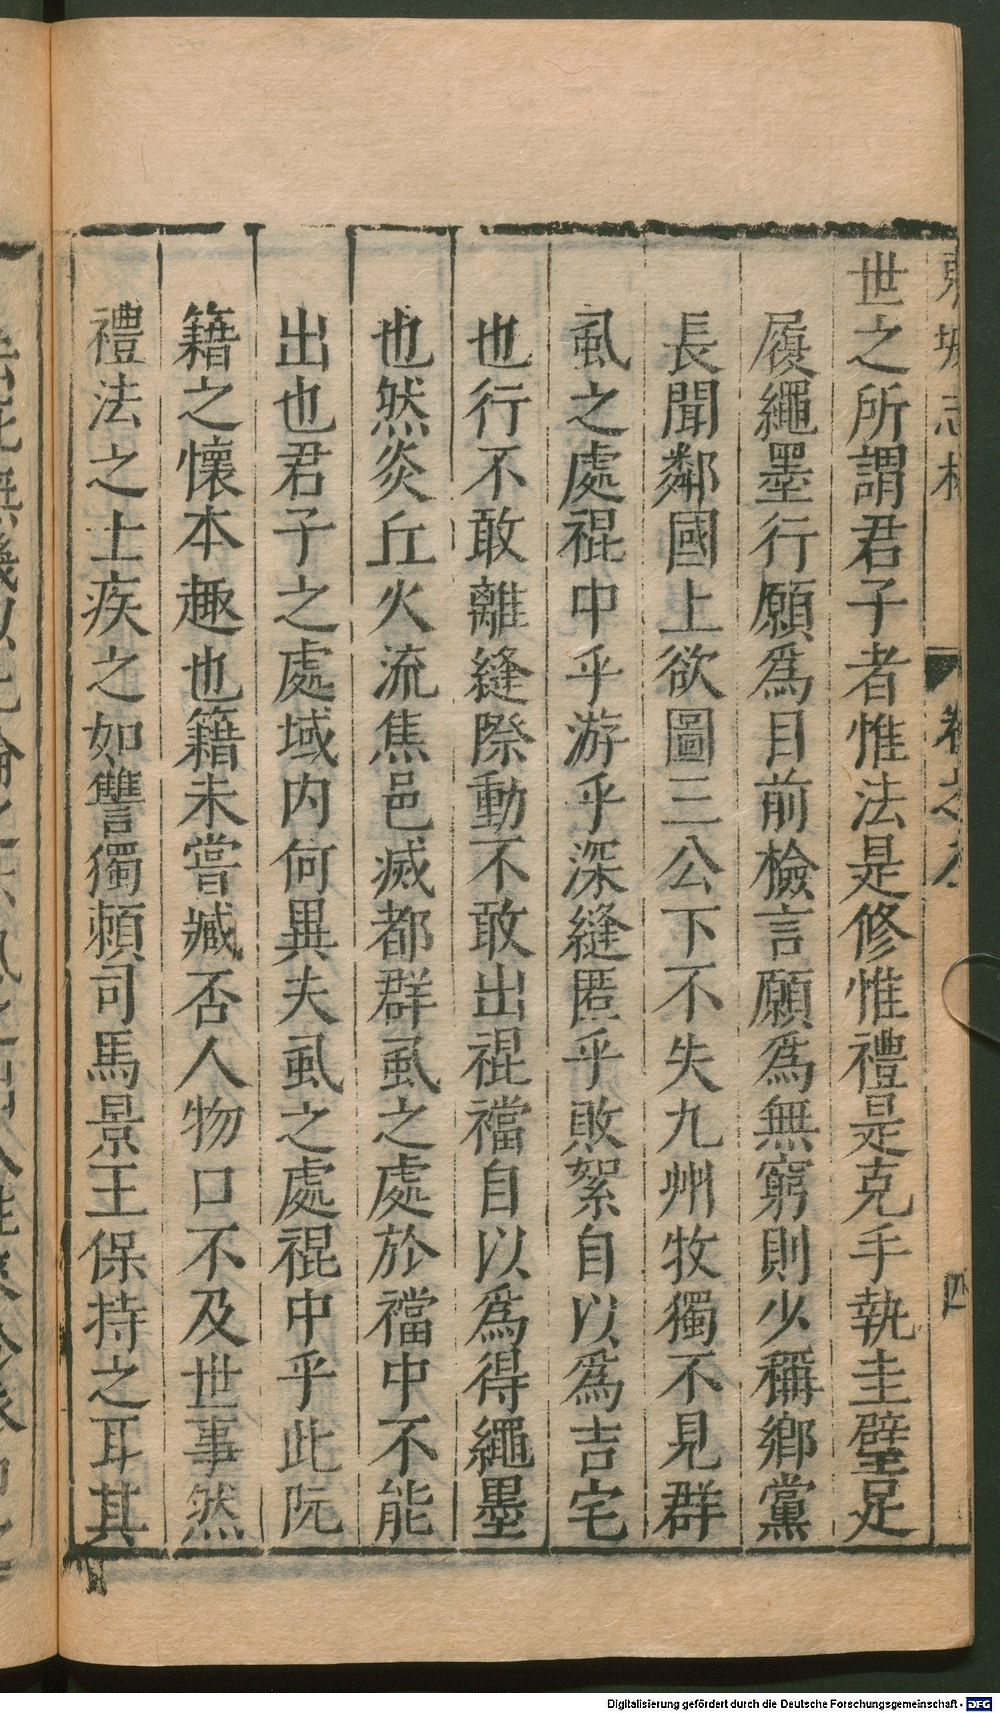 世之所謂君子者惟法是修惟禮是克手執圭璧足
履繩墨行願爲目前檢言願爲無窮則少稱鄉黨
長聞鄰國上欲圖三公下不失九州牧獨不見群
虱之處裩中乎游乎深縫匿乎敗絮自以爲吉宅
也行不敢離縫際動不敢出裩襠自以爲得繩墨
也然炎丘火流焦邑滅都群虱之處於襠中不能
出也君子之處域内何異夫虱之處裩中乎此阮
籍之懷本趣也籍未嘗臧否人物口不及世事然
禮法之士疾之如讐獨賴司馬景王保持之耳其
Digitalisierung gefördert durch die Deutsche Forschungsgemeinschaft - DFG